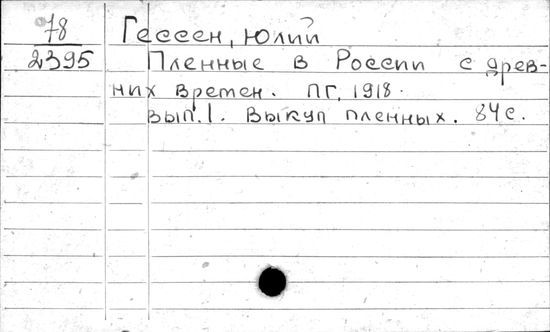 78
2395
Гессен, Юлий
Пленные в России с древ-
них времен. ПГ, 1918.
вып. 1. Выкуп пленных. 84 с.